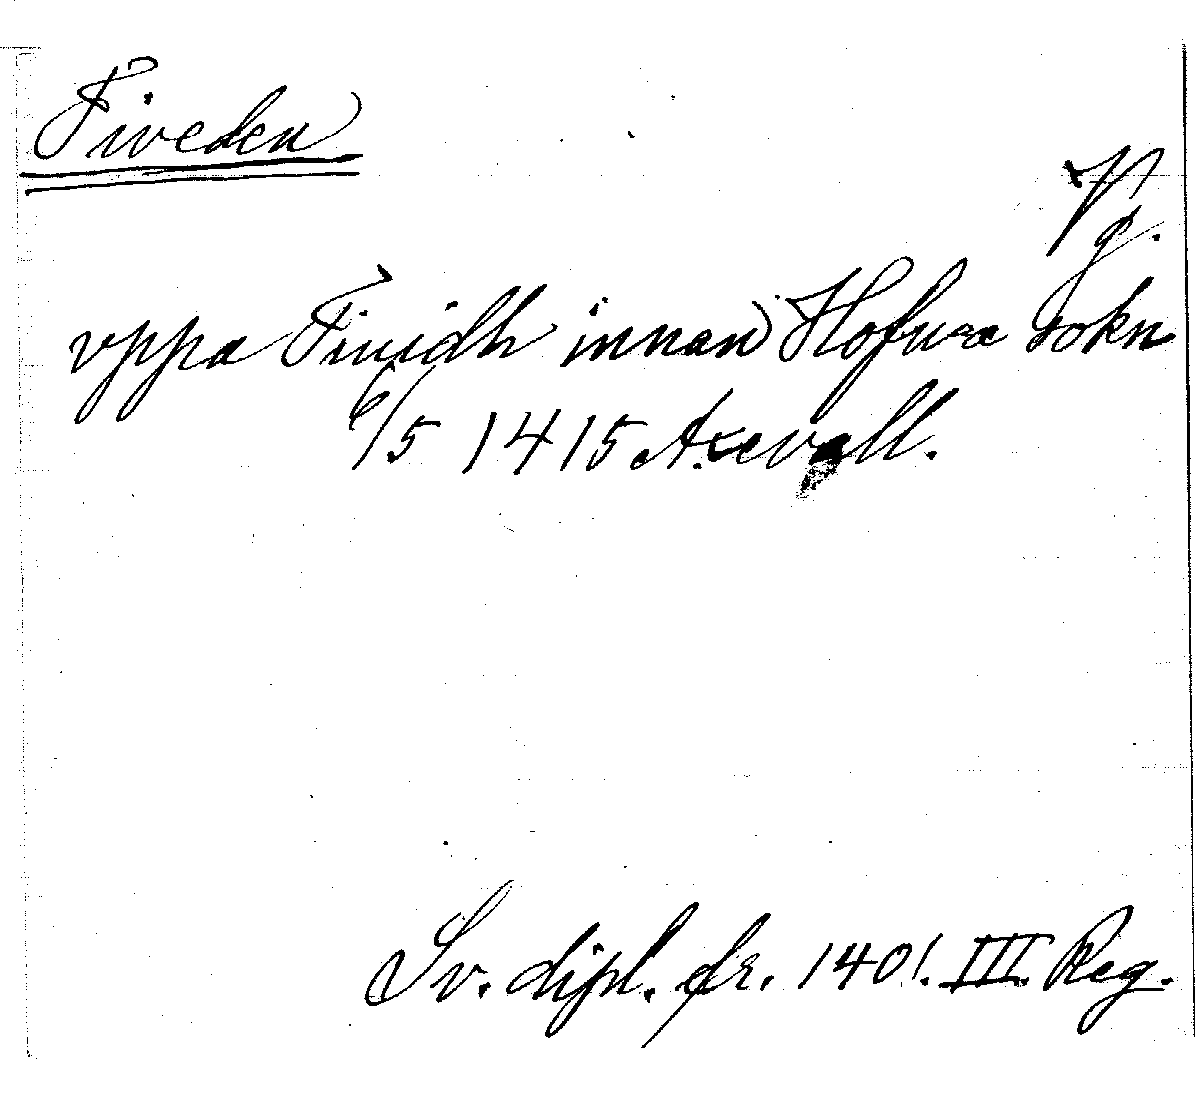 Tiveden
Vg.
vppa Tiuidh innan Hofwa sokn
6/5 1415 Axevall.
Sv. dipl. fr. 1401. III. Reg.